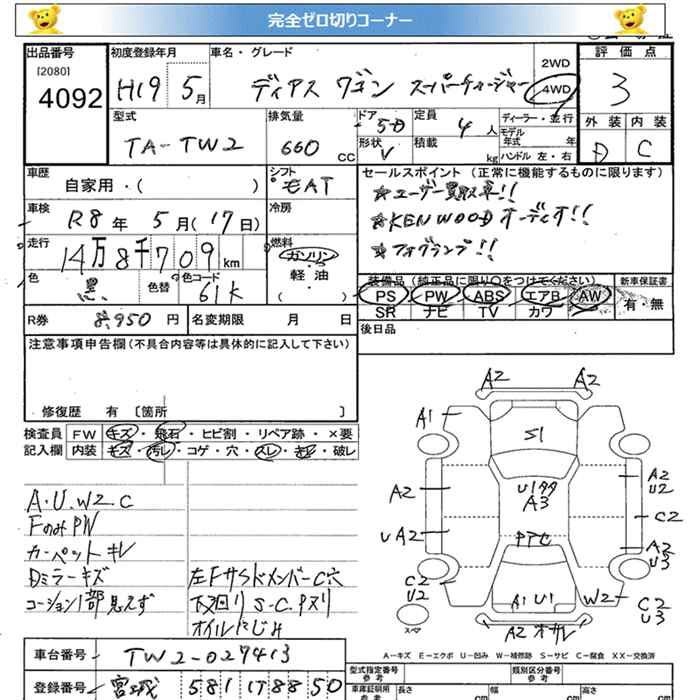 完全ゼロ切りコーナー
出品番号
[2080]
4092
初度登録年月
H19 5月
車名・グレード
ディアス ワゴン スーパーチャージャー
2WD
4WD
評価点
3
外装 内装
D C
型式
TA-TW2
排気量
660 cc
ドア
5D
形状
V
定員
4人
積載
kg
ディーラー・並行
モデル年式 年
ハンドル 左・右
車歴
自家用・( )
シフト
EAT
セールスポイント (正常に機能するものに限ります)
★ユーザー買取車!!
★KENWOODオーディオ!!
★フォグランプ!!
車検
R8年 5月(17日)
冷房
走行
14万8千709km
燃料
ガソリン
軽油
・( )
色
黒
色替
色コード
61K
装備品(純正品に限り○をつけてください)
新車保証書
PS PW ABS エアB AW
SR ナビ TV カワ
有・無
R券 8,950円
名変期限 月 日
後日品
注意事項申告欄(不具合内容等は具体的に記入して下さい)
修復歴 有 〔箇所 〕
検査員 FW キズ・飛石・ヒビ割・リペア跡・×要
記入欄 内装 キズ・汚レ・コゲ・穴・スレ・キレ・破レ
A・U・W2・C
FのみPW
カーペットキレ
Dミラーキズ
コーション1部見えず
左FサイドメンバーC穴
下廻りS・C・Pヌリ
オイルにじみ
A2 A2
A1
S1
A2
U1タタ
A3
A2
U2
C2
UA2
PTC
A2
U3
C2
U2
A1 U1
W2
C2
U3
スペア
A2 オサレ
A-キズ E-エクボ U-凹み W-補修跡 S-サビ C-腐食 XX-交換済
車台番号 TW2-027413
登録番号 宮城 581 け8850
型式指定番号
参考
類別区分番号
参考
車庫証明用
参考
長さ
cm
幅
cm
高さ
cm